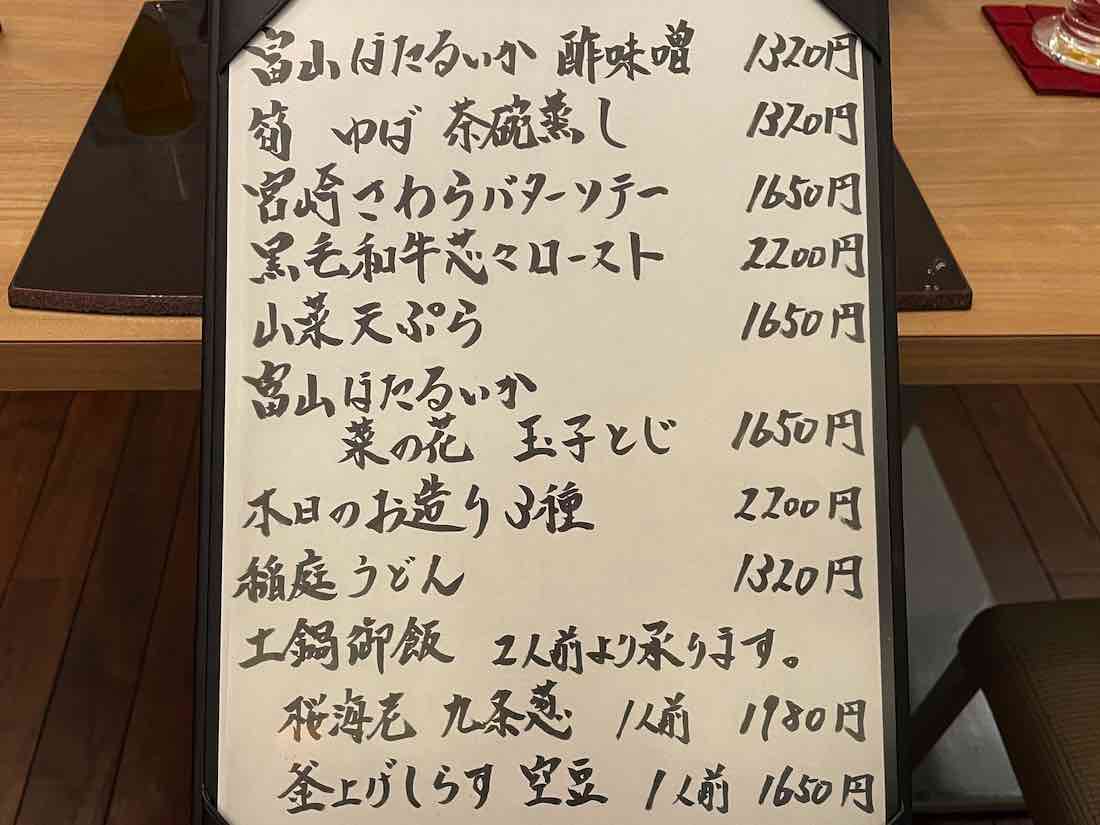 富山ほたるいか 酢味噌 1320円
筍 ゆば 茶碗蒸し 1320円
宮崎さわらバターソテー 1650円
黒毛和牛芯々ロースト 2200円
山菜天ぷら 1650円
富山ほたるいか
菜の花 玉子とじ 1650円
本日のお造り3種 2200円
稲庭うどん 1320円
土鍋御飯 2人前より承ります。
桜海老 九条葱 1人前 1980円
釜上げしらす 空豆 1人前 1650円